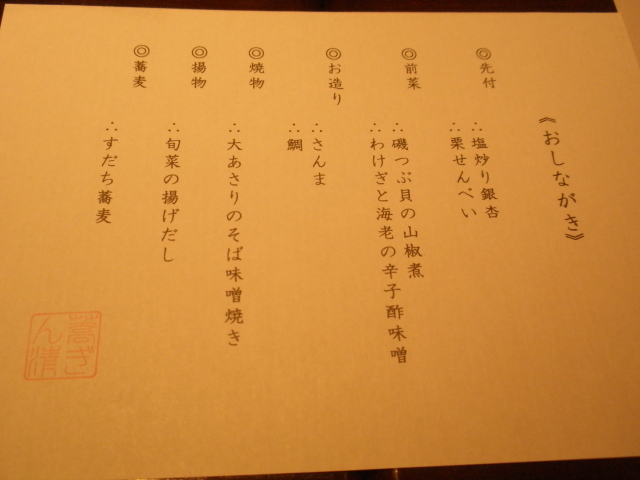 《おしながき》
◎先付
∴塩炒り銀杏
∴栗せんべい
◎前菜
∴磯つぶ貝の山椒煮
∴わけぎと海老の辛子酢味噌
◎お造り
∴さんま
∴鯛
◎焼物
∴大あさりのそば味噌焼き
◎揚物
∴旬菜の揚げだし
◎蕎麦
∴すだち蕎麦
蕎ぎ
ん清